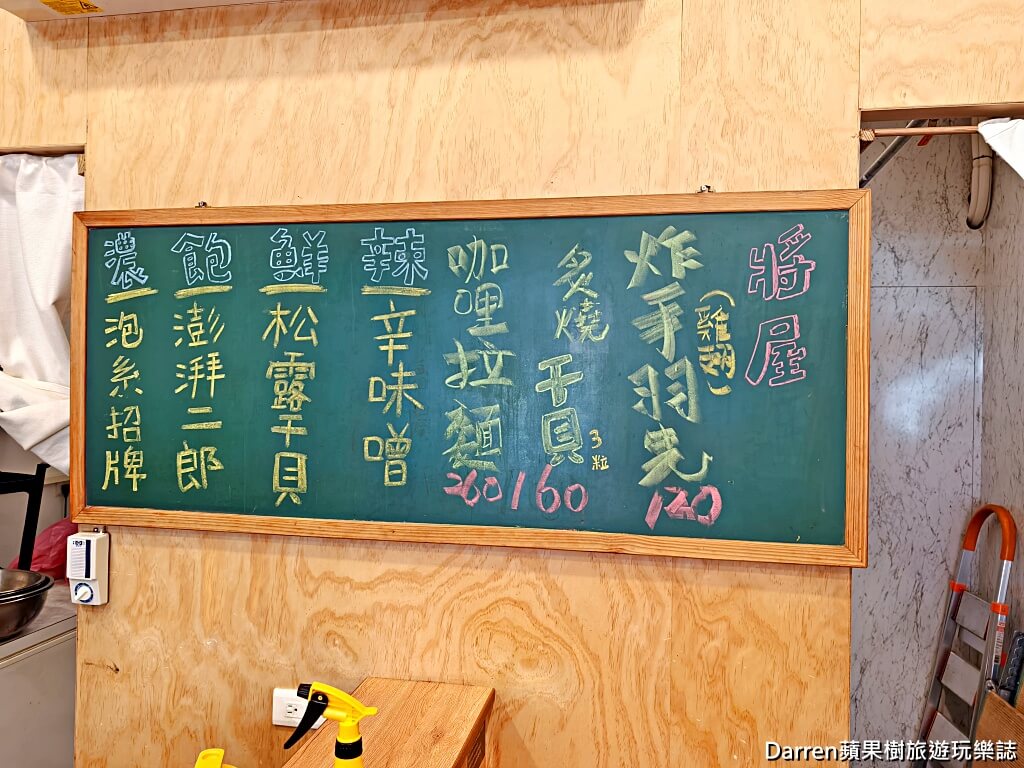 將屋
炸手羽先
(雞翅)
120
炙燒
干貝
3粒
160
咖哩拉麵
260
辣
辛味噌
鮮
松露干貝
飽
澎湃二郎
濃
泡系招牌
Darren蘋果樹旅遊玩樂誌